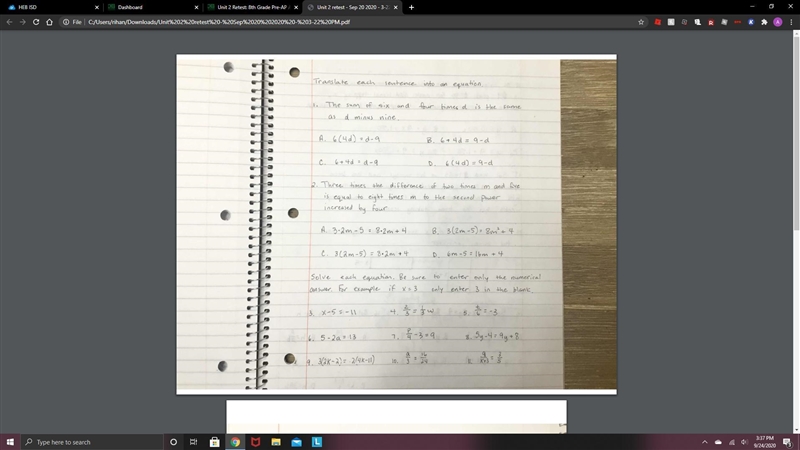 HEB ISD
Dashboard
Unit 2 Retest: 8th Grade Pre-AP A
Unit 2 retest - Sep 20 2020 - 3-2
File | C:/Users/rihan/Downloads/Unit%202%20retest%20-%20Sep%2020%202020%20-%203-22%20PM.pdf
Translate each sentence into an equation.
1. The sum of six and four times d is the same
as d minus nine.
A. 6(4d) = d-9 B. 6+4d = 9-d
C. 6+4d = d-9 D. 6(4d) = 9-d
2. Three times the difference of two times m and five
is equal to eight times m to the second power
increased by four.
A. 3·2m-5 = 8·2m+4 B. 3(2m-5) = 8m²+4
C. 3(2m-5) = 8·2m+4 D. 6m-5 = 16m+4
Solve each equation. Be sure to enter only the numerical
answer. For example: if x=3 only enter 3 in the blank.
3. x-5 = -11 4. 5.
6. 5-2a = 13 7. 8. 5y-4 = 9y+8
9. 10.
Type here to search
3:37 PM
9/24/2020